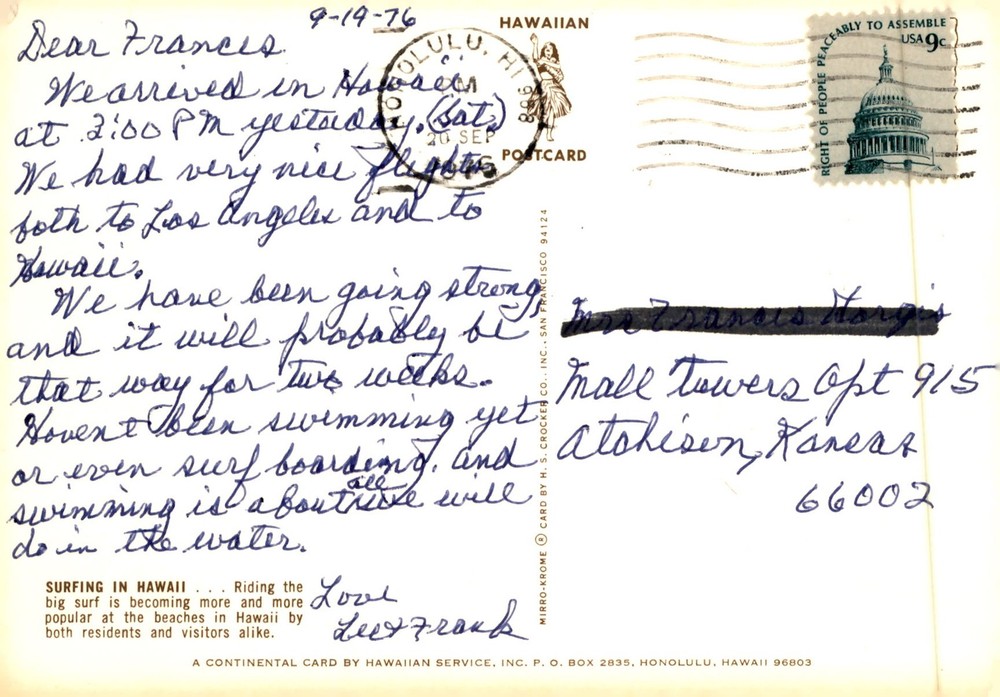 9-19-76
Dear Frances
We arrived in Hawaii
at 3:00 PM yesterday. (Sat.)
We had very nice flights
both to Los Angeles and to
Hawaii.
We have been going strong,
and it will probably be
that way for two weeks.
Havent been swimming yet
or even surf boarding, and
swimming is about all we will
do in the water.
Love
Lee & Frank
SURFING IN HAWAII . . . Riding the
big surf is becoming more and more
popular at the beaches in Hawaii by
both residents and visitors alike.
HAWAIIAN
POSTCARD
HONOLULU, HI
PM
20 SEP
968
RIGHT OF PEOPLE PEACEABLY TO ASSEMBLE
USA 9c
MIRRO-KROME ® CARD BY H. S. CROCKER CO., INC., SAN FRANCISCO 94124
Mrs Frances
Mall Towers Apt 915
Atchison, Kansas
66002
A CONTINENTAL CARD BY HAWAIIAN SERVICE, INC. P. O. BOX 2835, HONOLULU, HAWAII 96803